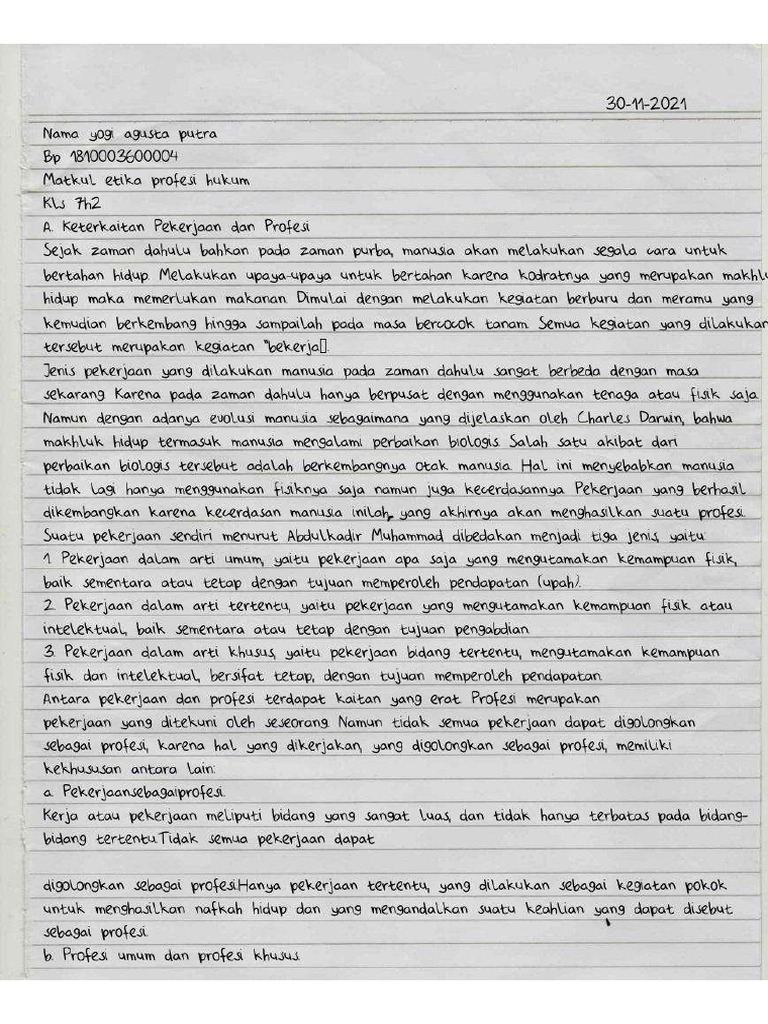 30-11-2021
Nama yogi agusta putra
Bp 1810003600004
Matkul etika profesi hukum
Kls 7h2
A. Keterkaitan Pekerjaan dan Profesi
Sejak zaman dahulu bahkan pada zaman purba, manusia akan melakukan segala cara untuk
bertahan hidup. Melakukan upaya-upaya untuk bertahan karena kodratnya yang merupakan makhlu
hidup maka memerlukan makanan. Dimulai dengan melakukan kegiatan berburu dan meramu yang
kemudian berkembang hingga sampailah pada masa bercocok tanam. Semua kegiatan yang dilakukan
tersebut merupakan kegiatan "bekerja▯.
Jenis pekerjaan yang dilakukan manusia pada zaman dahulu sangat berbeda dengan masa
sekarang. Karena pada zaman dahulu hanya berpusat dengan menggunakan tenaga atau fisik saja.
Namun dengan adanya evolusi manusia sebagaimana yang dijelaskan oleh Charles Darwin, bahwa
makhluk hidup termasuk manusia mengalami perbaikan biologis. Salah satu akibat dari
perbaikan biologis tersebut adalah berkembangnya otak manusia. Hal ini menyebabkan manusia
tidak lagi hanya menggunakan fisiknya saja namun juga kecerdasannya. Pekerjaan yang berhasil
dikembangkan karena kecerdasan manusia inilah, yang akhirnya akan menghasilkan suatu profesi.
Suatu pekerjaan sendiri menurut Abdulkadir Muhammad dibedakan menjadi tiga jenis, yaitu:
1. Pekerjaan dalam arti umum, yaitu pekerjaan apa saja yang mengutamakan kemampuan fisik,
baik sementara atau tetap dengan tujuan memperoleh pendapatan (upah).
2. Pekerjaan dalam arti tertentu, yaitu pekerjaan yang mengutamakan kemampuan fisik atau
intelektual, baik sementara atau tetap dengan tujuan pengabdian.
3. Pekerjaan dalam arti khusus, yaitu pekerjaan bidang tertentu, mengutamakan kemampuan
fisik dan intelektual, bersifat tetap, dengan tujuan memperoleh pendapatan.
Antara pekerjaan dan profesi terdapat kaitan yang erat. Profesi merupakan
pekerjaan yang ditekuni oleh seseorang. Namun tidak semua pekerjaan dapat digolongkan
sebagai profesi, karena hal yang dikerjakan, yang digolongkan sebagai profesi, memiliki
kekhususan antara lain:
a. Pekerjaansebagaiprofesi.
Kerja atau pekerjaan meliputi bidang yang sangat luas, dan tidak hanya terbatas pada bidang-
bidang tertentu.Tidak semua pekerjaan dapat
digolongkan sebagai profesi.Hanya pekerjaan tertentu, yang dilakukan sebagai kegiatan pokok
untuk menghasilkan nafkah hidup dan yang mengandalkan suatu keahlian yang dapat disebut
sebagai profesi.
b. Profesi umum dan profesi khusus.